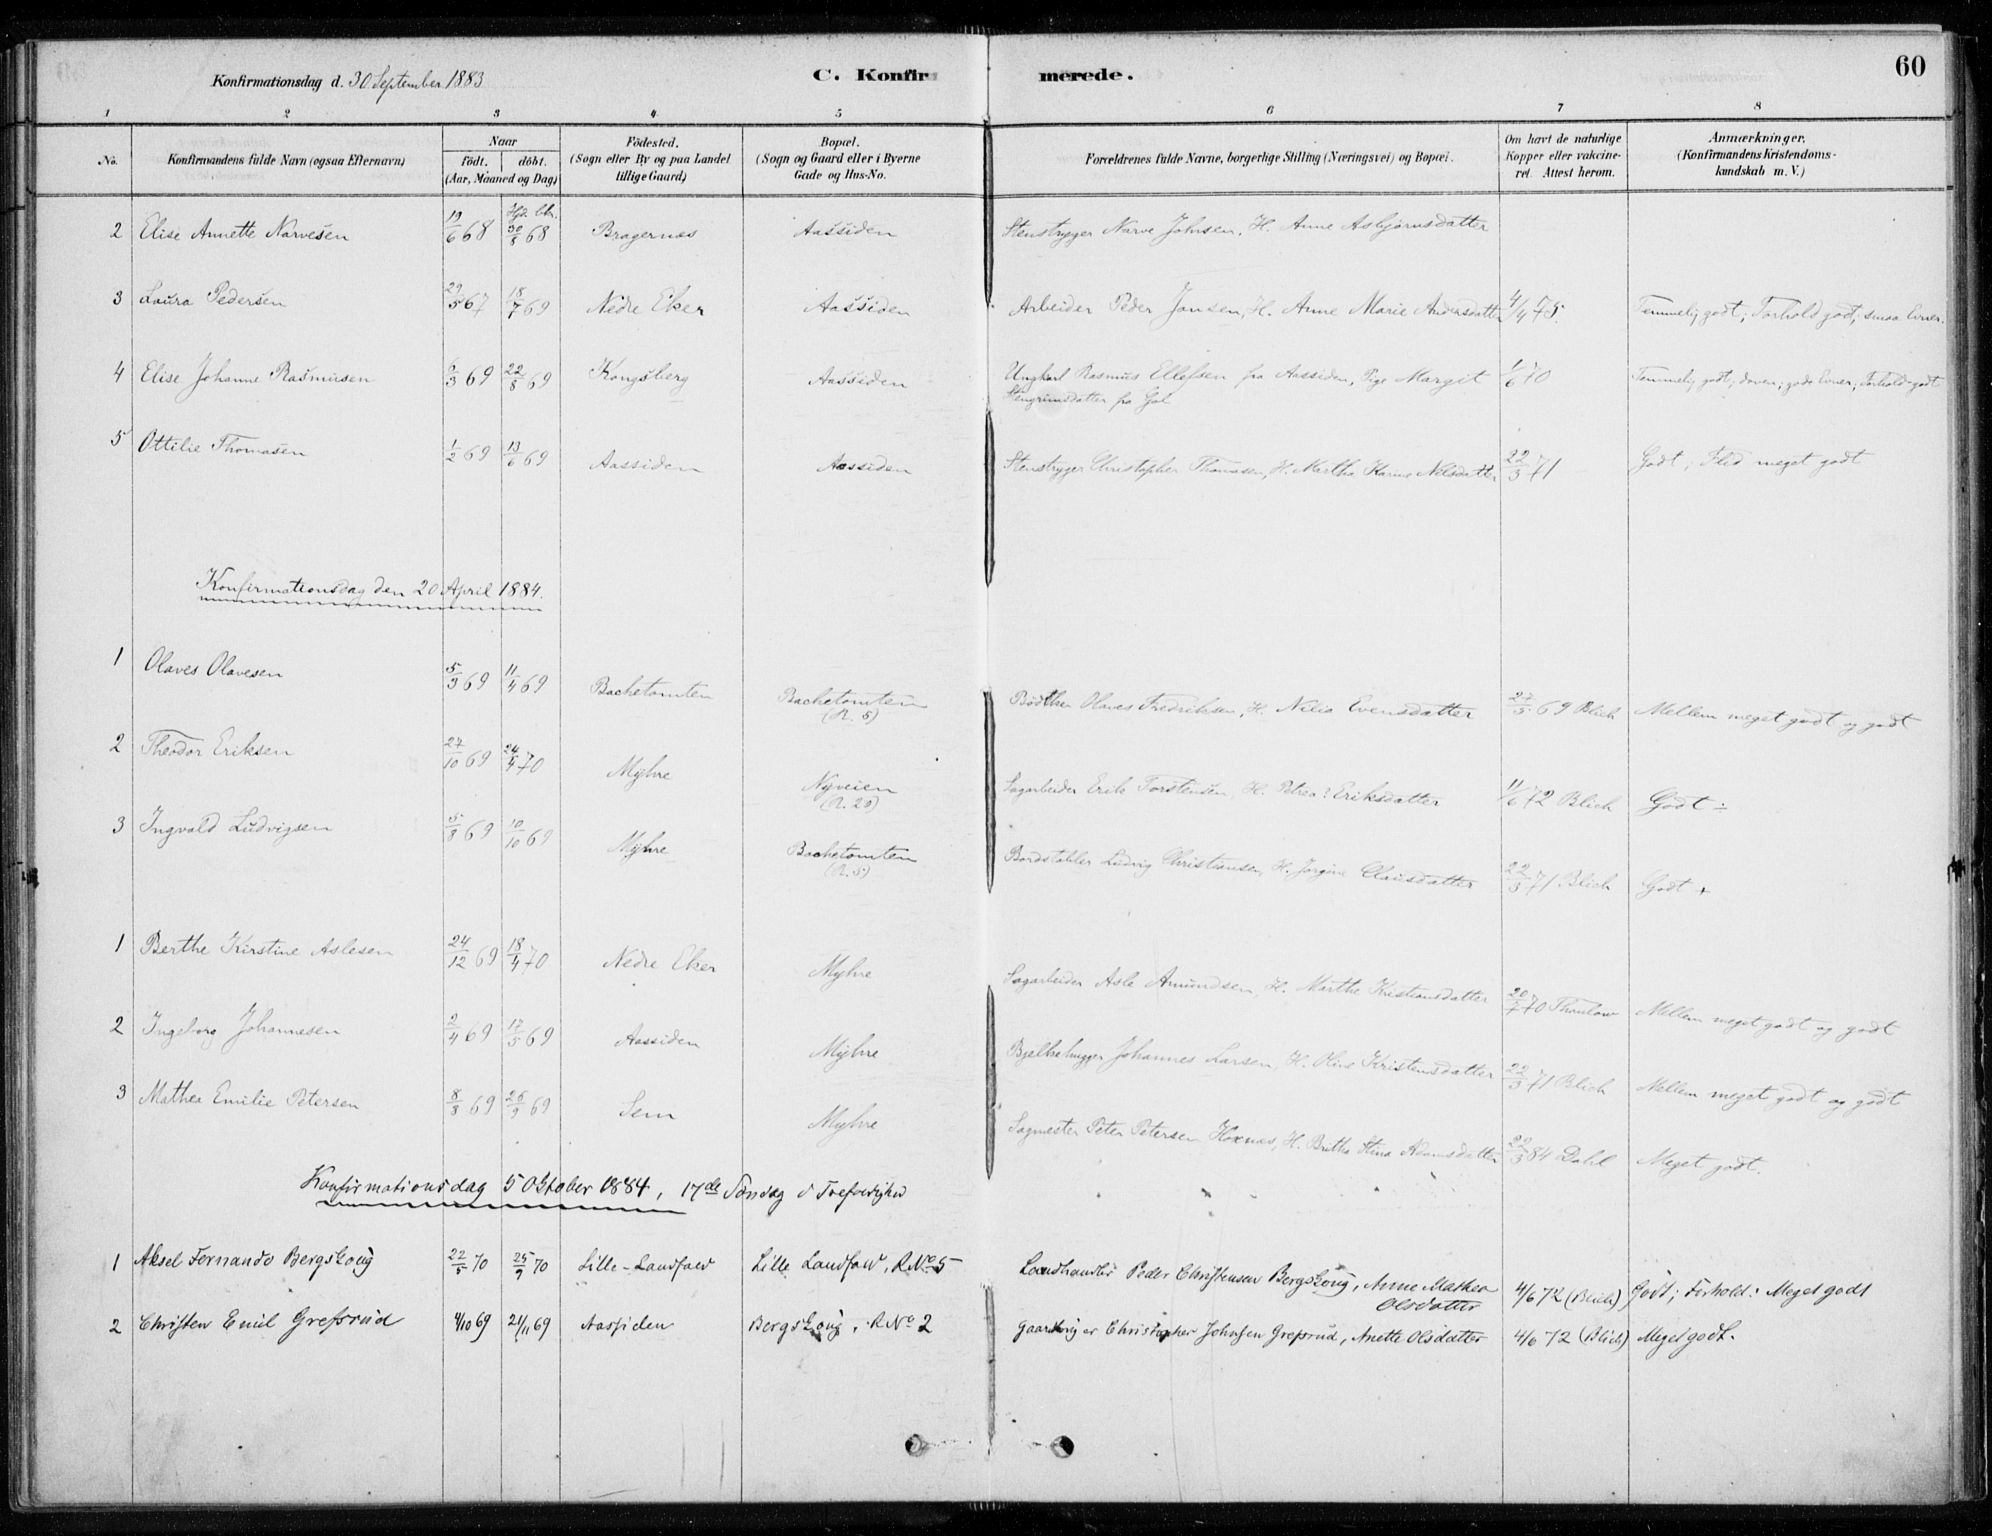 Konfirmationsdag d. 30 September 1883 C. Konfirmerede. 60
1 2 3 4 5 6 7 8
No. Konfirmandens fulde Navn (ogsaa Efternavn) Naar födt. döbt. (Aar, Maaned og Dag) Födested. (Sogn eller By og paa Landet tillige Gaard) Bopæl. (Sogn og Gaard eller i Byerne Gade og Hus-No. Forældrenes fulde Navne, borgerlige Stilling (Næringsvei) og Bopæl. Om havt de naturlige Kopper eller vakcineret. Attest herom. Anmærkninger. (Konfirmandens Kristendomskundskab m. V.)
2 Elise Annette Narvesen 19/6 68 30/8 68 Bragernæs Aassiden Stenstryger Narve Johnsen, H. Anne Asbjørnsdatter
3 Laura Pedersen 29/5 67 18/7 69 Nedre Eker Aassiden Arbeider Peder Jansen, H. Anne Marie Andersdatter 4/4 75. Temmelig godt; Forhold godt; smaa Evner.
4 Elise Johanne Rasmusen 6/3 69 22/8 69 Kongsberg Aassiden Ungkarl Rasmus Ellefsen fra Aassiden, Pige Margit 1/6 70 Temmelig godt; doven; gode Evner; Forhold godt
Stengrimsdatter fra Gol
5 Ottilie Thomasen 1/2 69 13/6 69 Aassiden Aassiden Stenstryger Christopher Thomasen, H. Martha Karine Nilsdatter 22/3 71 Godt; Flid meget godt
Konfirmationsdag den 20 April 1884.
1 Olaves Olavesen 5/3 69 11/4 69 Bachetomten Bachetomten (R. 5) Bødtker Olaves Fredriksen, H. Nilia Evensdatter 27/5 69 Blich Mellem meget godt og godt
2 Theodor Eriksen 27/10 69 24/4 70 Myhre Nyveien (R. 20) Sagarbeider Erik Torstensen, H. Petrea? Eriksdatter 11/6 72 Blich Godt ÷
3 Ingvald Ludvigsen 5/8 69 10/10 69 Myhre Bachetomten (R. 5) Bordstabler Ludvig Christiansen, H. Jørgine Clausdatter 22/3 71 Blich Godt +
1 Berthe Kirstine Aslesen 24/12 69 18/4 70 Nedre Eker Myhre Sagarbeider Asle Amundsen, H. Marthe Kristiansdatter 20/7 70 Thaulow Mellem meget godt og godt
2 Ingeborg Johannesen 2/4 69 17/5 69 Aassiden Myhre Bjelkehugger Johannes Larsen, H. Oline Kristensdatter 22/3 71 Blich Mellem meget godt og godt
3 Mathea Emilie Petersen 8/8 69 26/9 69 Sem Myhre Sagmester Peter Petersen Hoxnæs, H. Britha Stina Adamsdatter 22/3 84 Dahl Meget godt.
Konfirmationsdag 5 Oktober 1884, 17de Søndag
1 Aksel Fernando Bergskoug 22/5 70 25/9 70 Lille-Landfald Lille Landfald, R No 5 Landhandler Peder Christensen Bergskoug, Anne Mathea Olsdatter 4/6 72 (Blich) Godt; Forhold: Meget godt
2 Christen Emil Grefsrud 4/10 69 21/11 69 Aassiden Bergskoug, R No 2 Gaardbruger Christopher Johnsen Grefsrud, Anette Olsdatter 4/6 72 (Blich) Meget godt.